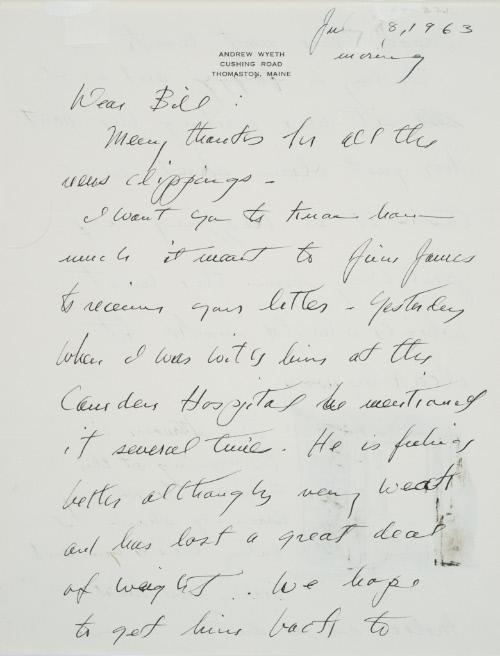 July 8, 1963
morning
ANDREW WYETH
CUSHING ROAD
THOMASTON, MAINE
Dear Bill :
Many thanks for all the
news clippings -
I want you to know how
much it meant to Jim James
to receive your letter - yesterday
when I was with him at the
Camden Hospital he mentioned
it several times. He is feeling
better although very weak
and has lost a great deal
of weight. We hope
to get him back to